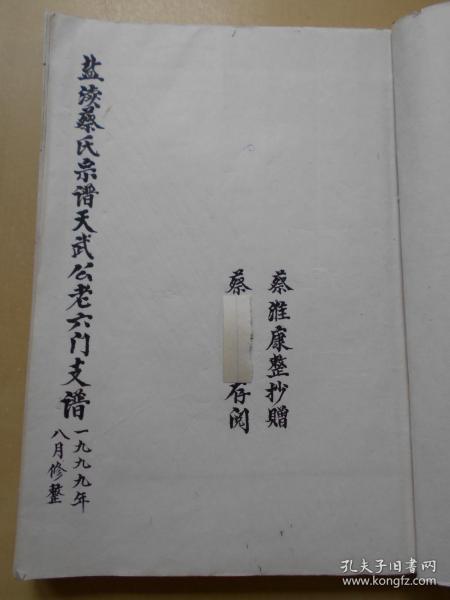 蔡淮康整抄贈
蔡
存阅
盐渎蔡氏宗谱天武公老六门支谱
一九九九年
八月修整
孔夫子旧书网
www.kongfz.com